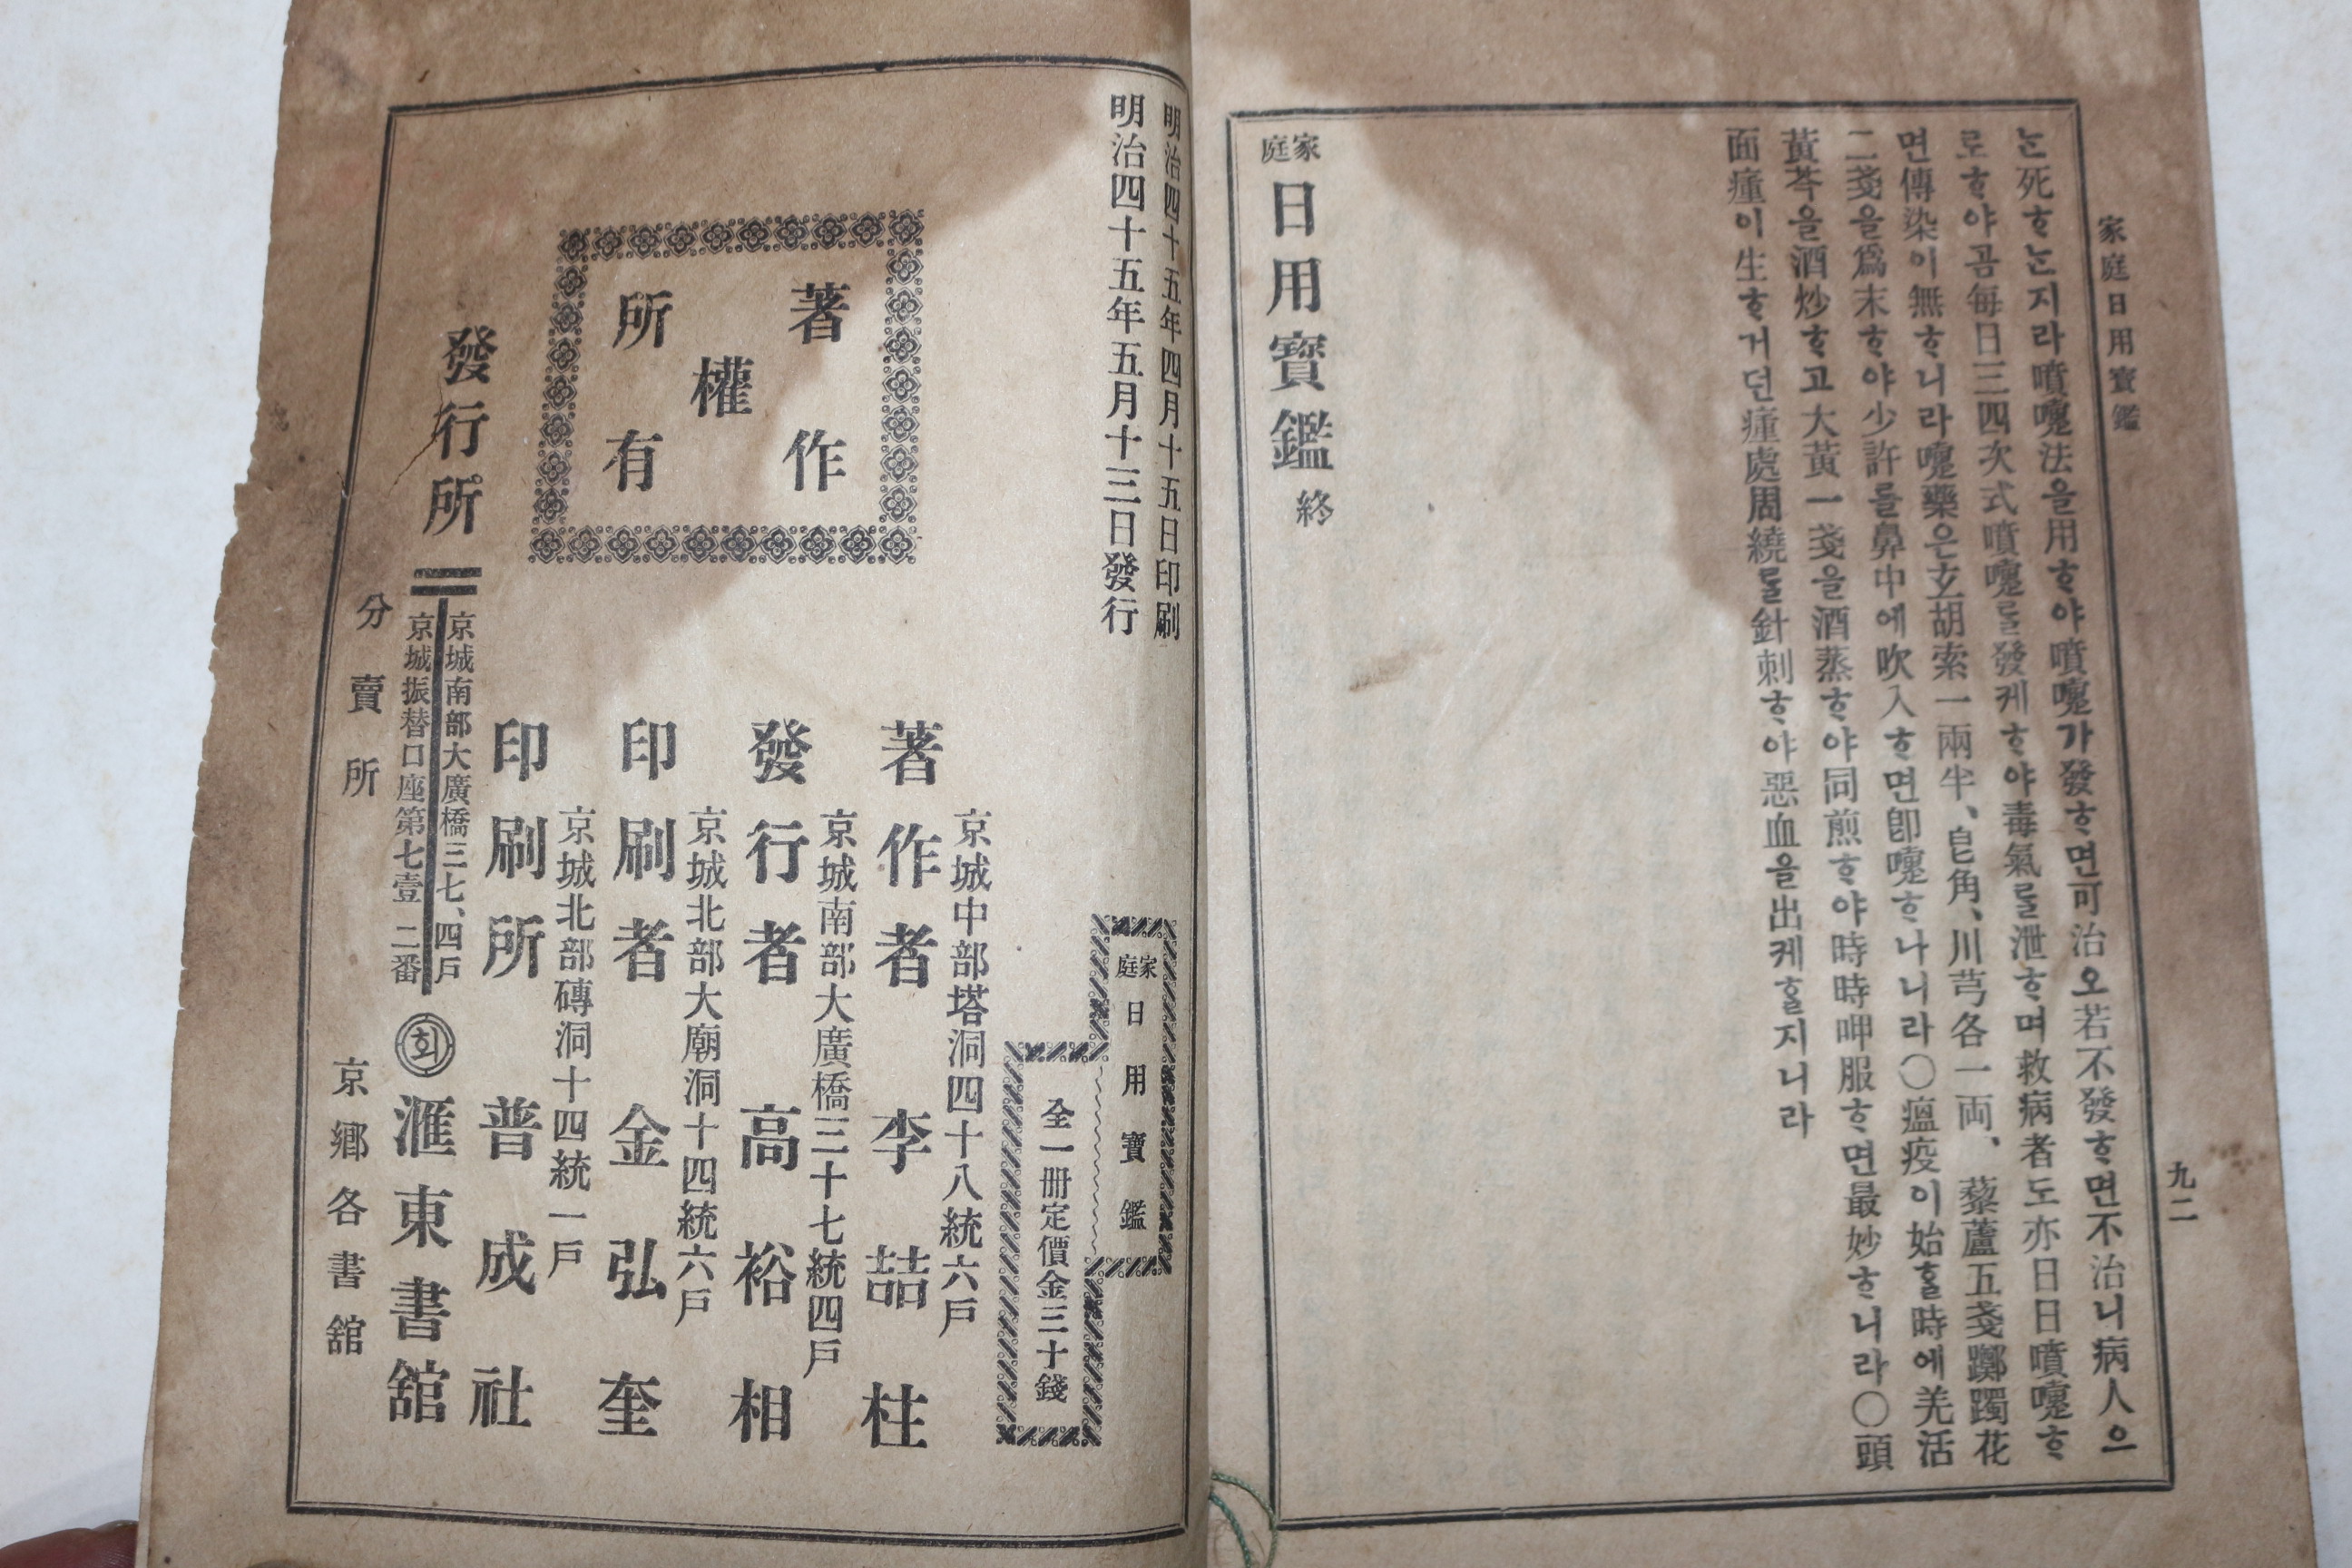 家庭日用寶鑑
九二
는死ᄒᆞ는지라噴嚔法을用ᄒᆞ야噴嚔가發ᄒᆞ면可治오若不發ᄒᆞ면不治니病人으
로ᄒᆞ야곰每日三四次式噴嚔를發케ᄒᆞ야毒氣를泄ᄒᆞ며救病者도亦日日噴嚔ᄒᆞ
면傳染이無ᄒᆞ니라嚔藥은玄胡索一兩半、皂角、川芎各一両、藜蘆五戔躑躅花
二戔을爲末ᄒᆞ야少許를鼻中에吹入ᄒᆞ면卽嚔ᄒᆞ나니라○瘟疫이始ᄒᆞᆯ時에羌活
黃芩을酒炒ᄒᆞ고大黃一戔을酒蒸ᄒᆞ야同煎ᄒᆞ야時時呷服ᄒᆞ면最妙ᄒᆞ니라○頭
面瘇이生ᄒᆞ거던瘇處周繞를針刺ᄒᆞ야惡血을出케ᄒᆞᆯ지니라
家庭日用寶鑑終
明治四十五年四月十五日印刷
明治四十五年五月十三日發行
家庭日用寶鑑
全一冊定價金三十錢
著作權所有
京城中部塔洞四十八統六戶
著作者 李喆柱
京城南部大廣橋三十七統四戶
發行者 高裕相
京城北部大廟洞十四統六戶
印刷者 金弘奎
京城北部磚洞十四統一戶
印刷所 普成社
發行所
京城南部大廣橋三七、四戶
京城振替口座第七壹二番
회 滙東書舘
分賣所 京鄉各書舘